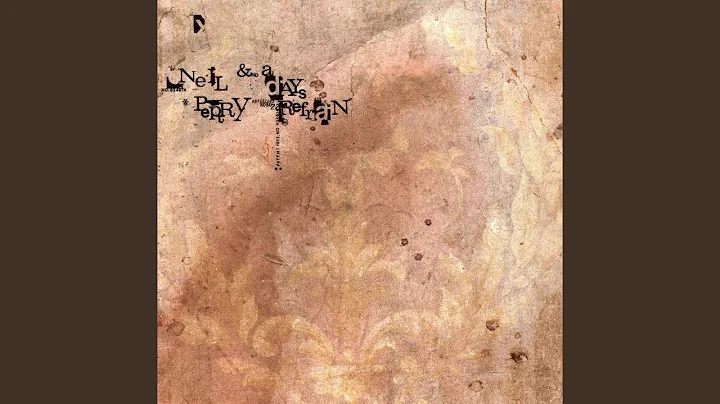 NeiL & a dAYs
PeRRY RefraiN